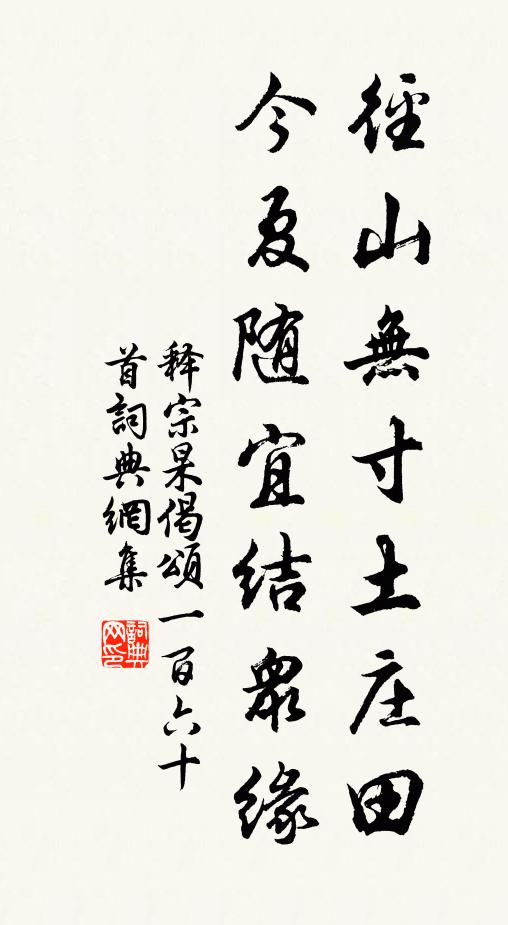 徑山無寸土庄田
今夏随宜結衆緣
释宗杲偈頌一百六十
首詞典網集
詞典
网印